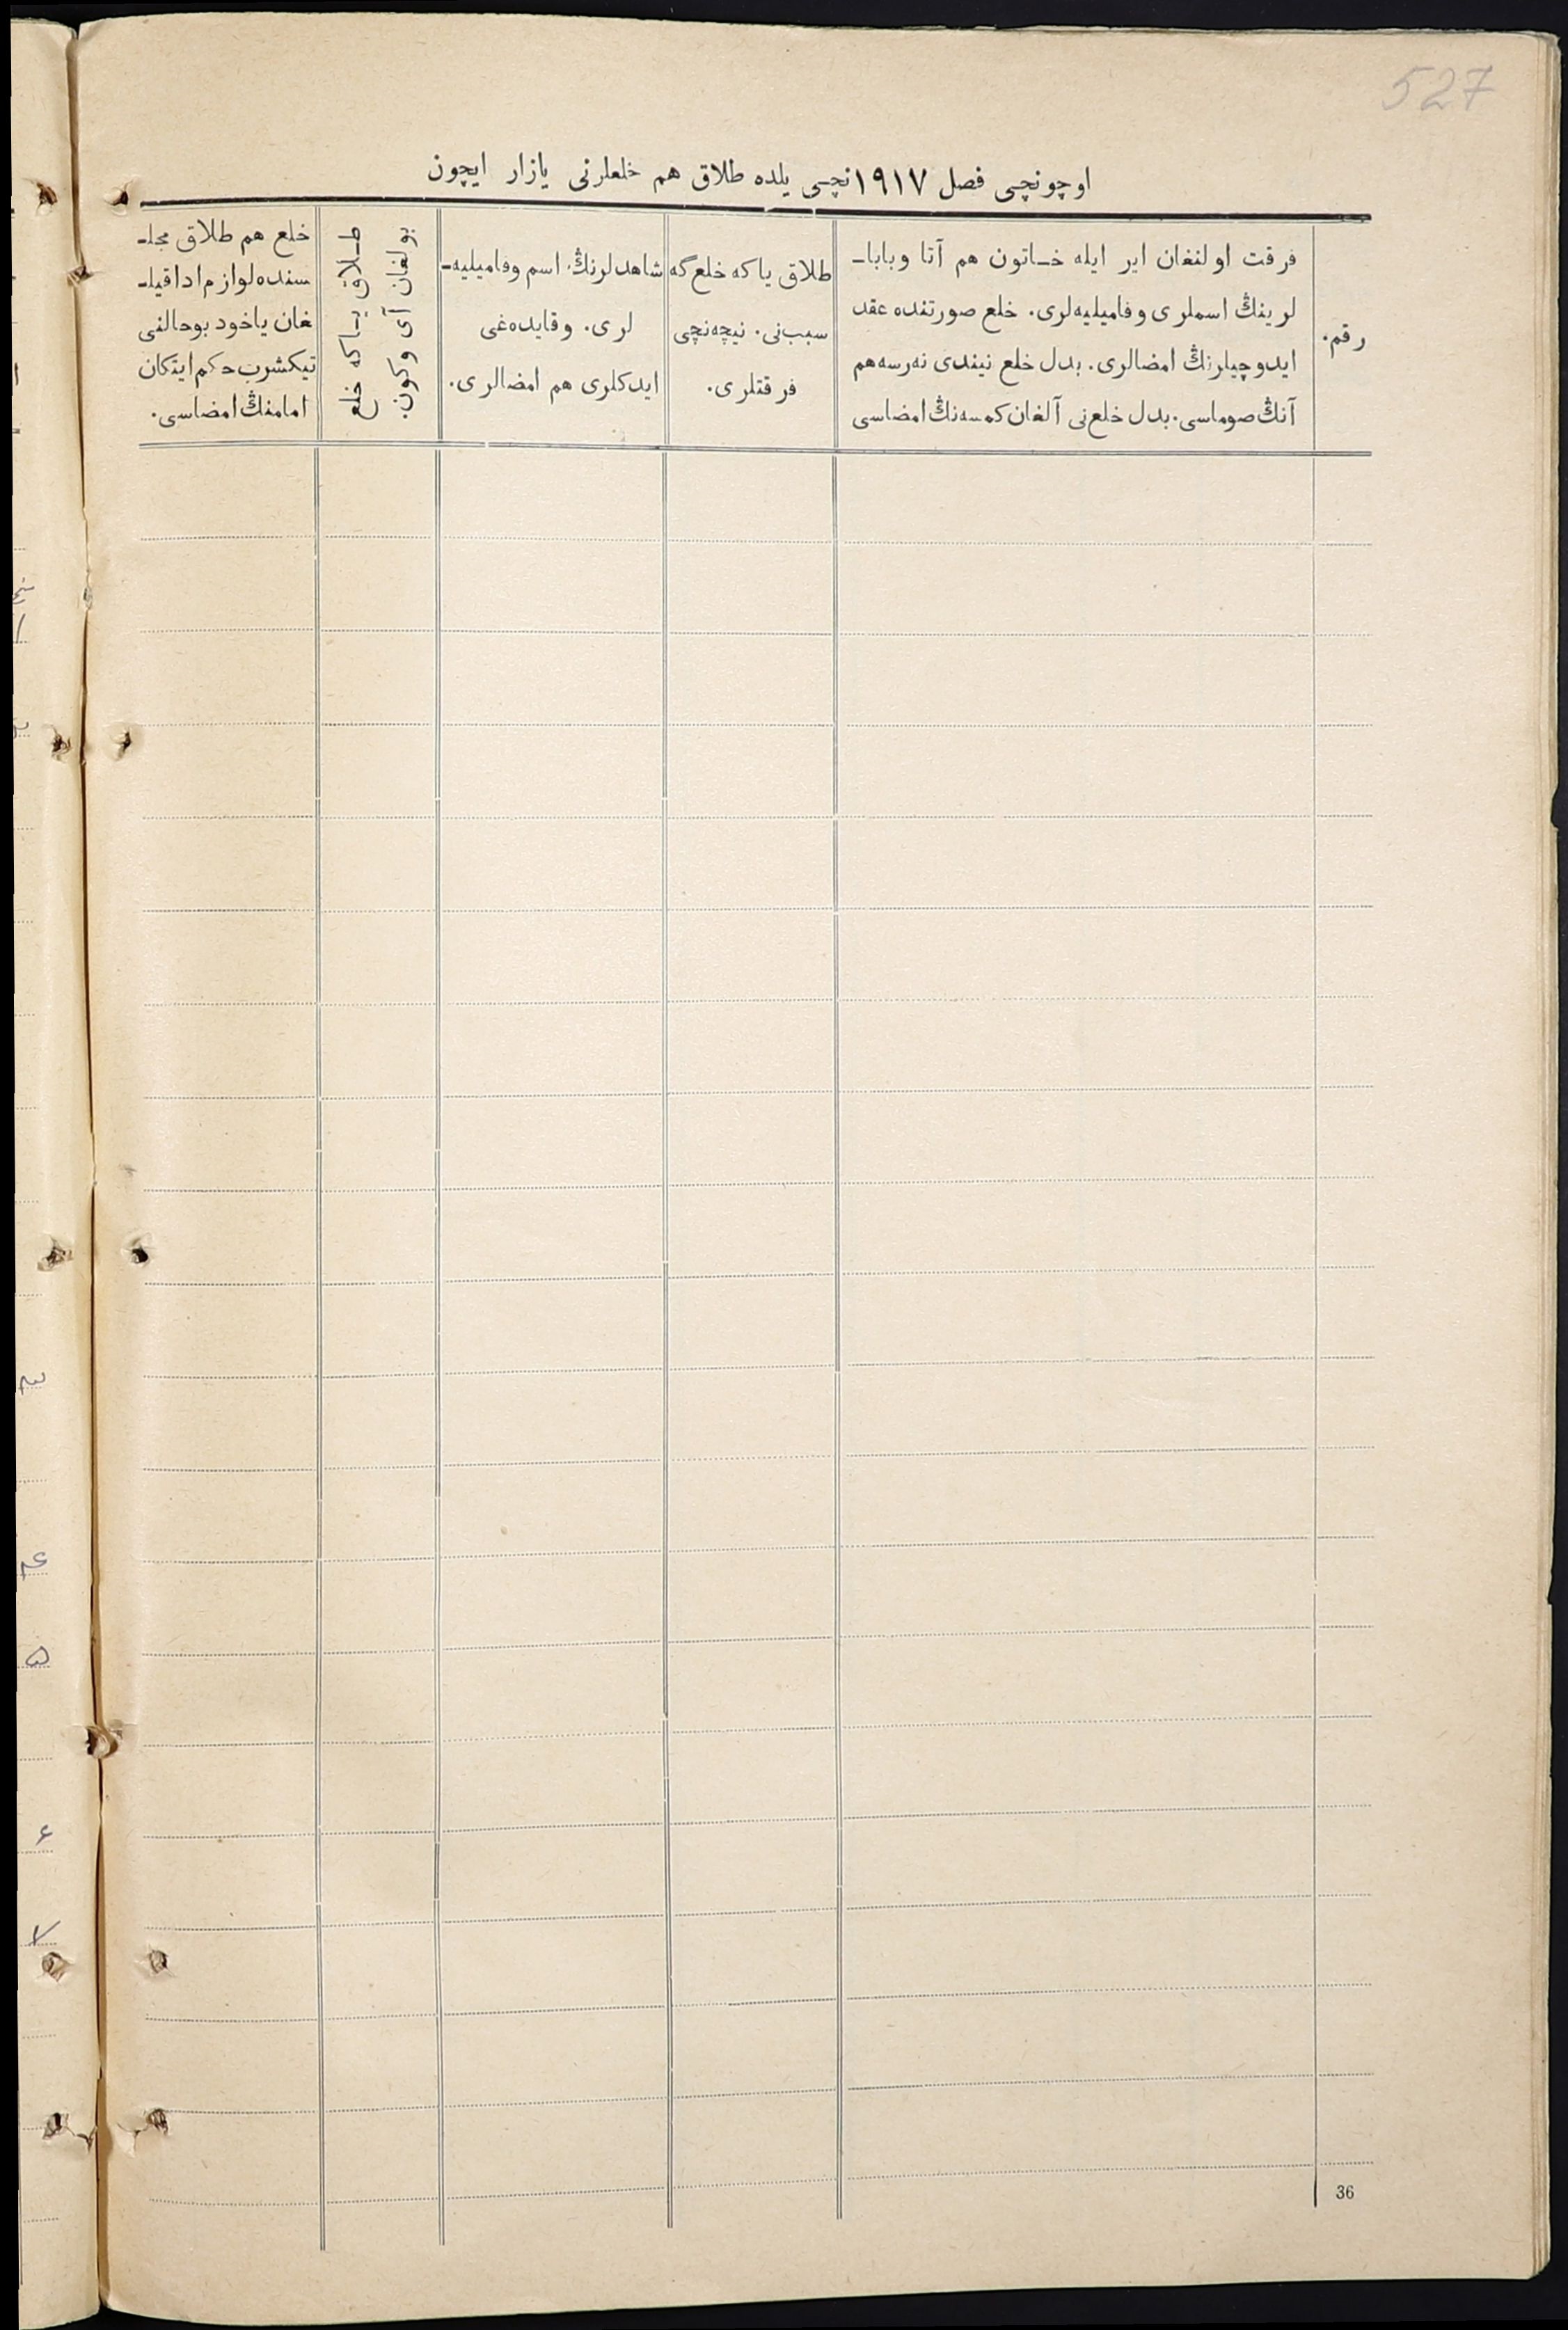 527
اوچونچی فصل ١٩١٧نچی یلده طلاق هم خلعلرنی یازار ایچون
رقم.
فرقت اولنغان ایر ایله خـاتون هم آتا وبابا-
لرینڭ اسملری وفامیلیەلری. خلع صورتنده عقد
ایدوچیلرنڭ امضالری. بدل خلع نیندی نەرسەهم
آنڭ صوماسی. بدل خلع‌نی آلغان کمسەنڭ امضاسی
طلاق یاکه خلع‌گه
سبب‌نی. نیچەنچی
فرقتلری.
شاهدلرنڭ اسم وفامیلیه-
لری. وقایده‌غی
ایدکلری هم امضالری.
طـلاق یـاکه خلع
بولغان آی وکون.
خلع هم طلاق مجلـ
سنده‌لوازم‌اداقیلـ
غان یاخود بوحالنی
تیکشرب‌حکم‌ایتکان
امامنڭ امضاسی.
36
٣
۴
۵
۶
٧